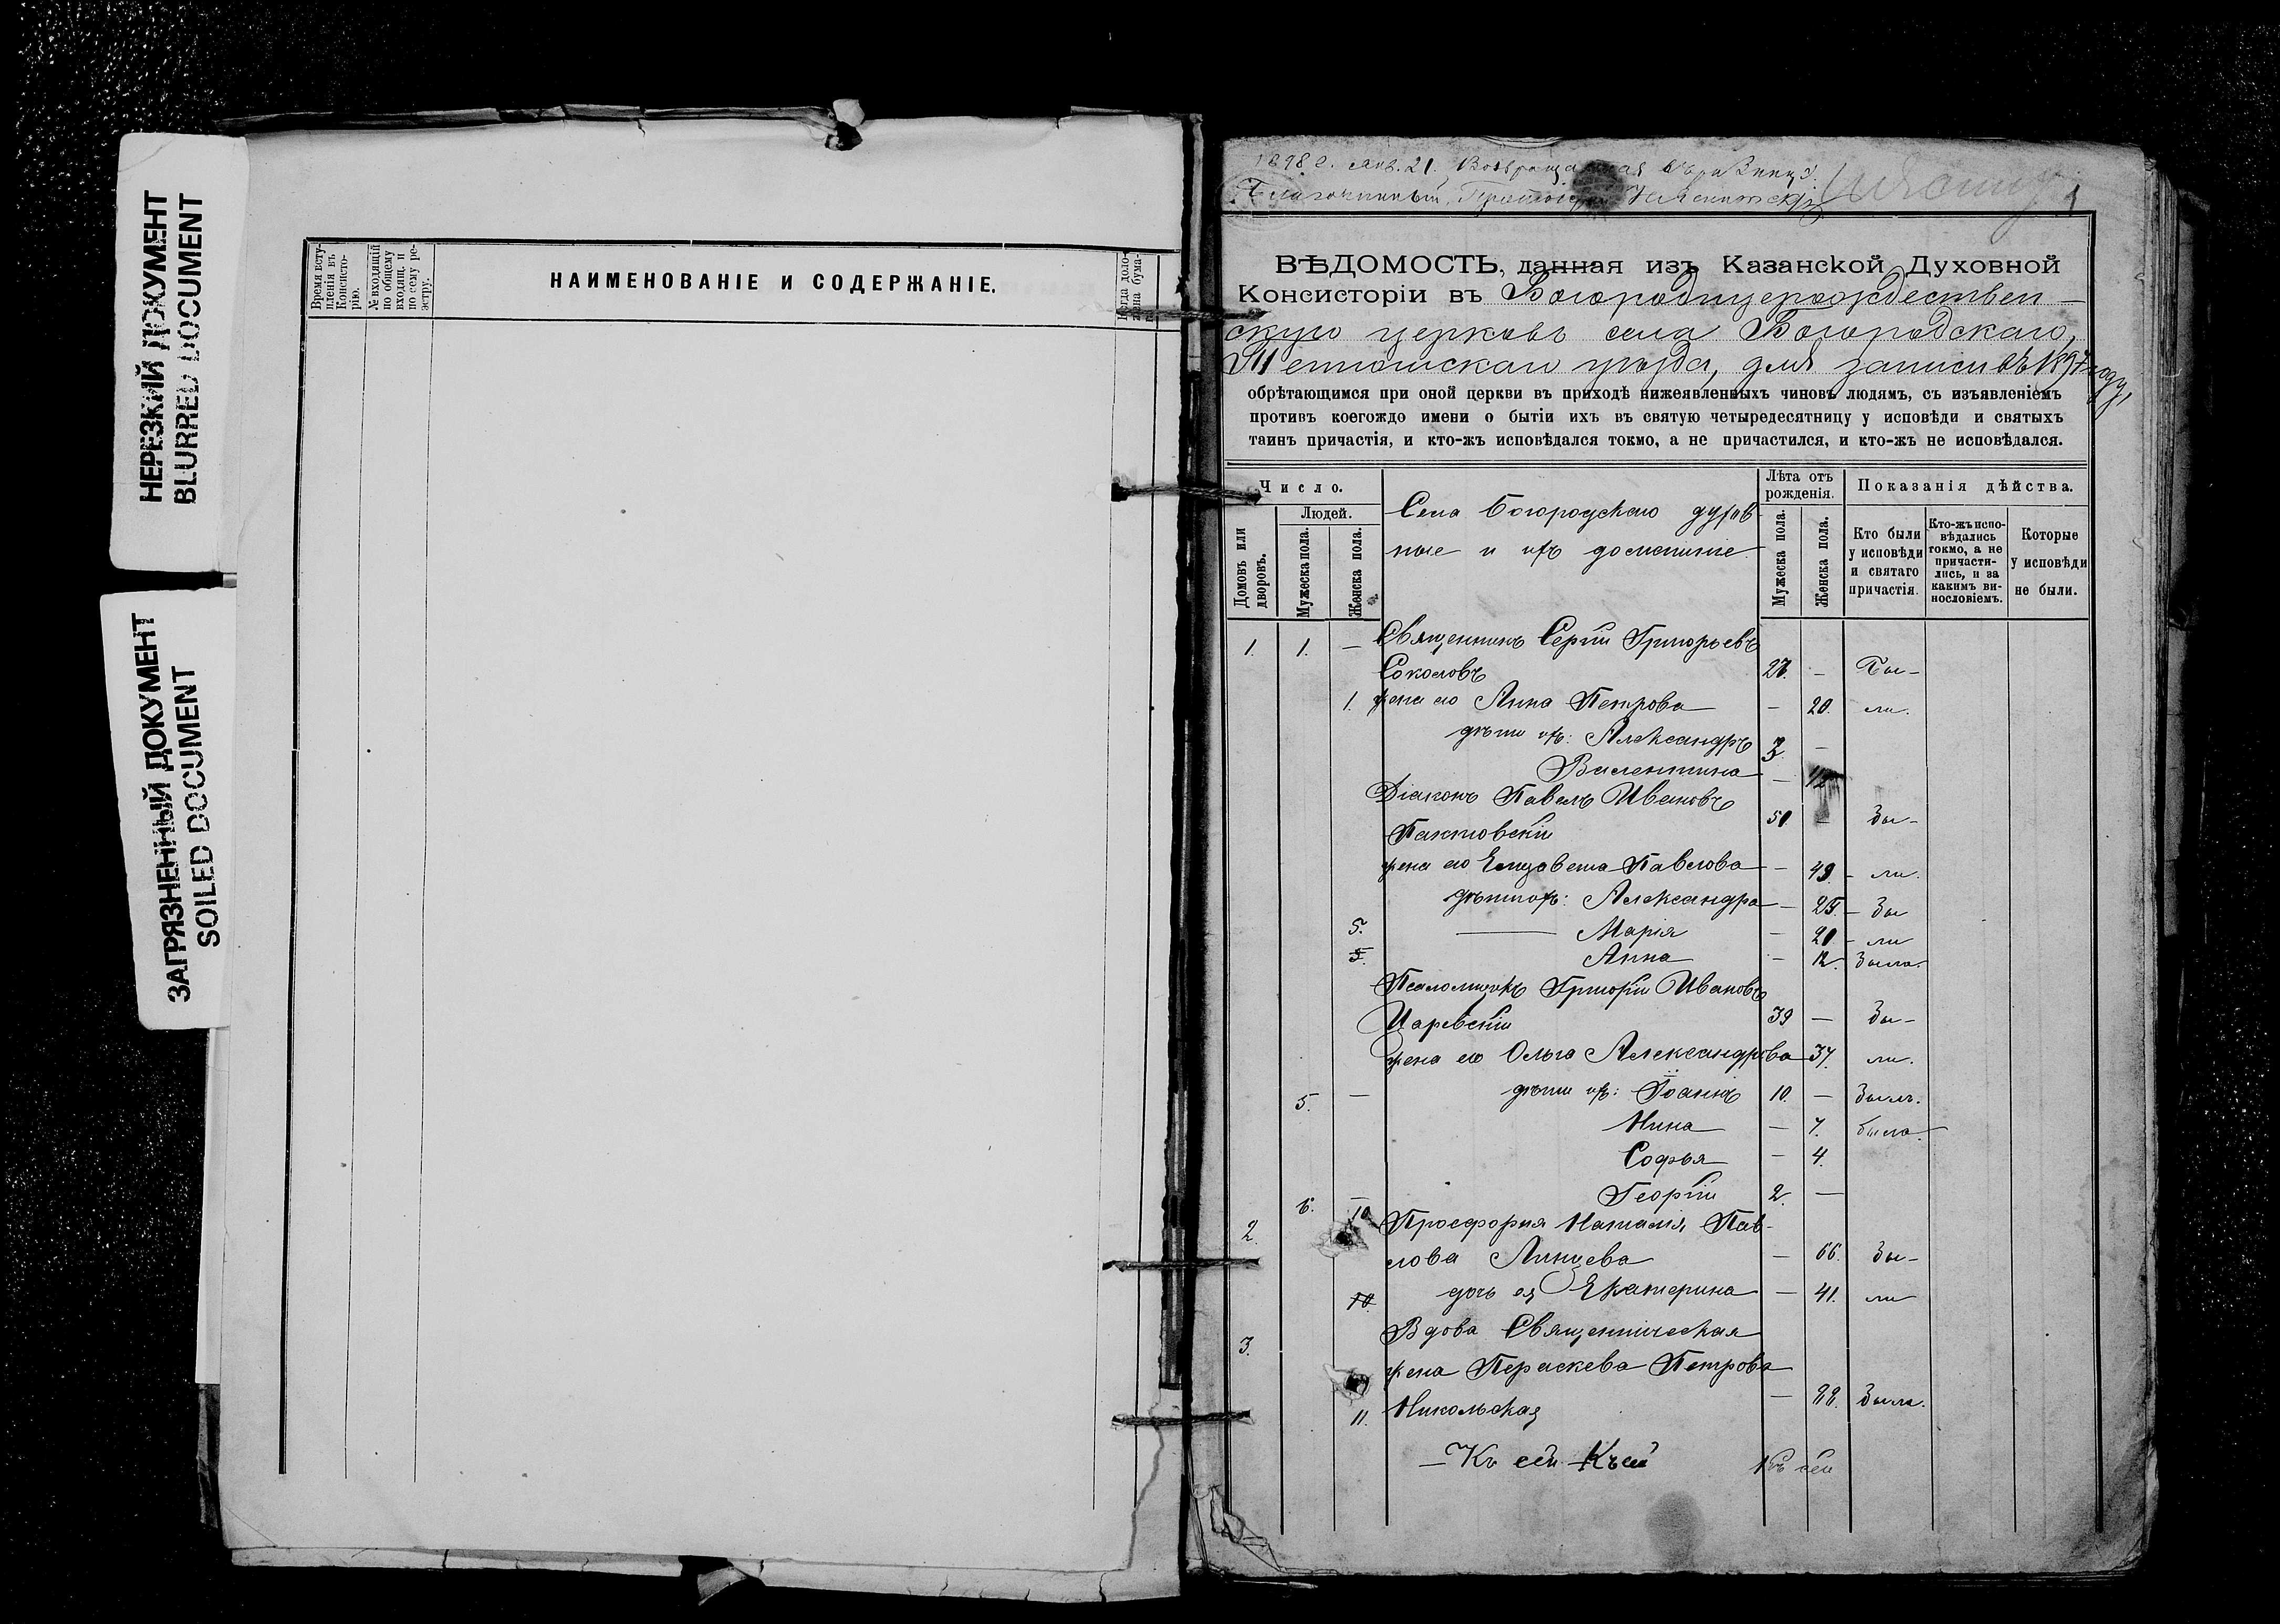 НЕРЕЗКИЙ ДОКУМЕНТ
BLURRED DOCUMENT
ЗАГРЯЗНЕННЫЙ ДОКУМЕНТ
SOILED DOCUMENT
Время вступленія въ Консисторію.
№ входящій по общему входящ. и по сему реэстру.
НАИМЕНОВАНІЕ И СОДЕРЖАНІЕ.
1898 г. Янв. 21.
Благочинный,
1
ВѢДОМОСТЬ, данная изъ Казанской Духовной
Консисторіи въ Богородицерождествен-
скую церковь села Богородскаго,
Тетюшскаго уѣзда, для записи въ 1897 году,
обрѣтающимся при оной церкви въ приходѣ нижеявленныхъ чиновъ людямъ, съ изъявленіемъ
противъ коегождо имени о бытіи ихъ въ святую четыредесятницу у исповѣди и святыхъ
таинъ причастія, и кто-жъ исповѣдался токмо, а не причастился, и кто-жъ не исповѣдался.
Число.
Людей.
Домовъ или дворовъ.
Мужеска пола.
Женска пола.
Села Богородскаго духов-
ные и ихъ домашніе
Лѣта отъ рожденія.
Мужеска пола.
Женска пола.
Показанія дѣйства.
Кто были у исповѣди и святаго причастія.
Кто-жъ исповѣдались токмо, а не причастились, и за какимъ винословіемъ.
Которые у исповѣди не были.
1. 1. — Священникъ Сергій Григорьевъ
Соколовъ 27. — Бы-
1. жена его Анна Петрова — 20. ли.
дѣти ихъ: Александръ 3 —
Валентина —
Діаконъ Павелъ Ивановъ
50 — Бы-
жена его Елизавета Павлова — 49. — ли.
дѣти ихъ: Александра — 25. — Бы
5. Марія — 20. — ли
5. Анна — 12. Была.
Псаломщикъ Григорій Ивановъ
Царевскій 39 — Бы-
жена его Ольга Александрова 37. ли.
5. — дѣти ихъ: Іоаннъ 10. — Былъ.
Нина — 7. была.
Софья — 4.
6. — Георгій 2. —
2. 10. Просфорня Наталія Пав-
лова — 66. Бы-
10. дочь ея Екатерина — 41. ли
3. Вдова Священническая
жена Параскева Петрова
11. Никольская — 88. Была.
— Къ сей Къ сей Къ сей